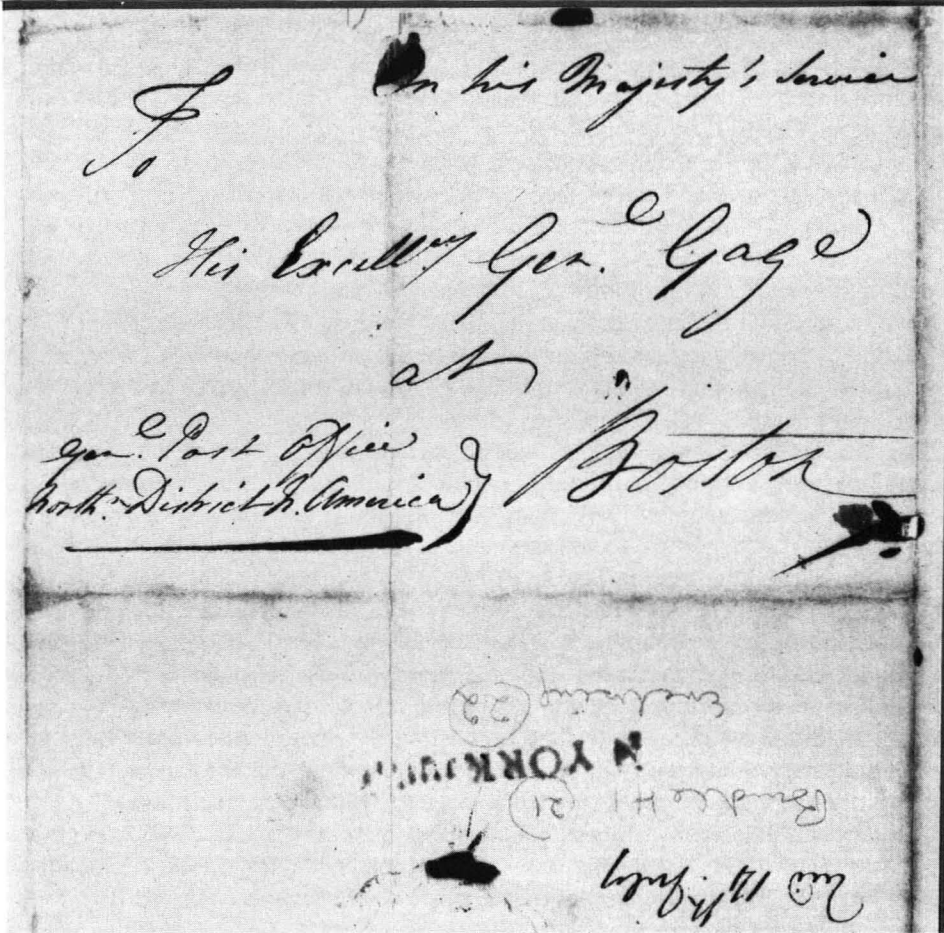 In his Majesty's Service
To
His Excellcy Gen.l Gage
at
Boston
Gen.l Post Office
North.n District N. America
Enclosing (22)
N YORK
Bundle H1 (21)
14th July